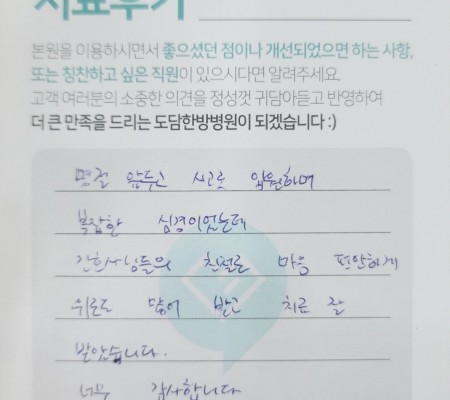 치료후기
본원을 이용하시면서 좋으셨던 점이나 개선되었으면 하는 사항,
또는 칭찬하고 싶은 직원이 있으시다면 알려주세요.
고객 여러분의 소중한 의견을 정성껏 귀담아듣고 반영하여
더 큰 만족을 드리는 도담한방병원이 되겠습니다 :)
명절 앞두고 사고로 입원하며
복잡한 심경이었는데
간호사님들의 친절로 마음 편안하게
위로도 많이 받고 치료 잘
받았습니다.
너무 감사합니다